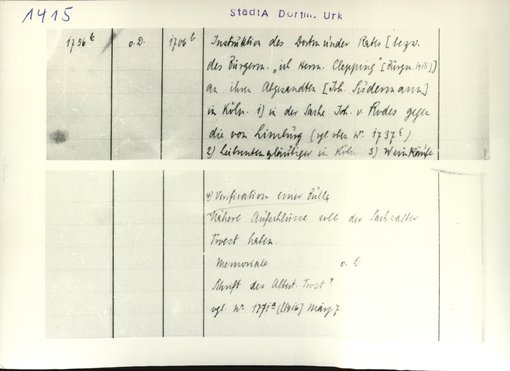 1415
StadtA Dortm. Urk
1736ᵃ o.D. 1706ᵇ Instruktion des Dortmunder Rates [bezw.
des Bürgerm. „ich Herm. Clepping" [Bürgm. 1415)]
an ihren Abgesandten [Joh. Sudermann]
in Köln. 1) in der Sache Joh. v. Rodes gegen
die von Limburg (vgl. oben nr. 1737ᵃ)
2) Leibrentengläubiger in Köln 3) Weinkäufe
4) Verification einer Bulle
Nähere Aufschlüsse soll der Sachwalter
Troest haben.
Memoriale o. D.
Schrift des Albert Troest?
vgl. nr. 1771ᵃ (1416) März 7